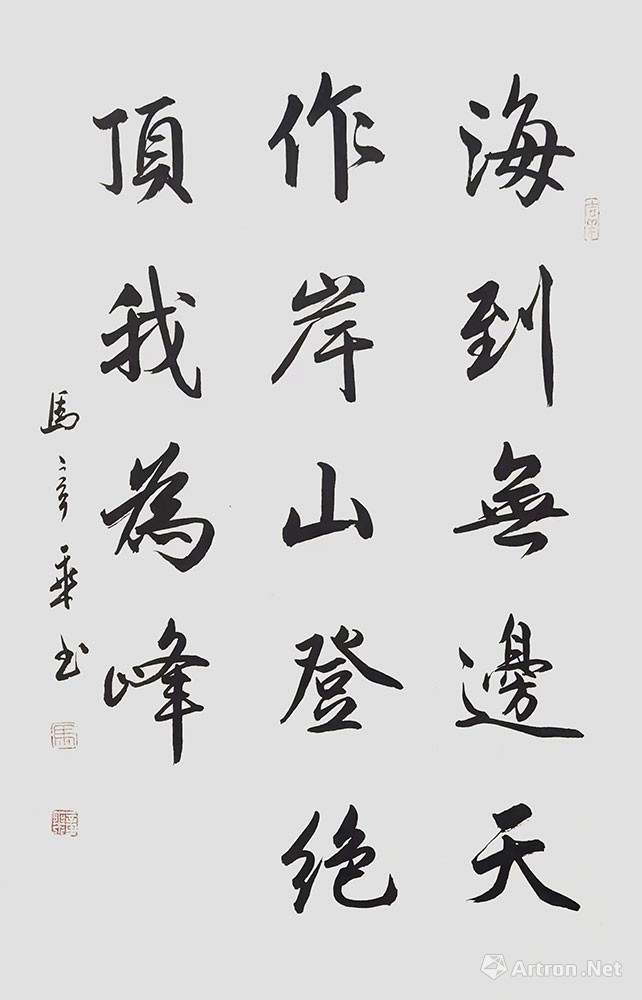 海到無邊天
作岸山登絶
頂我為峰
馬彦華书
Artron.Net